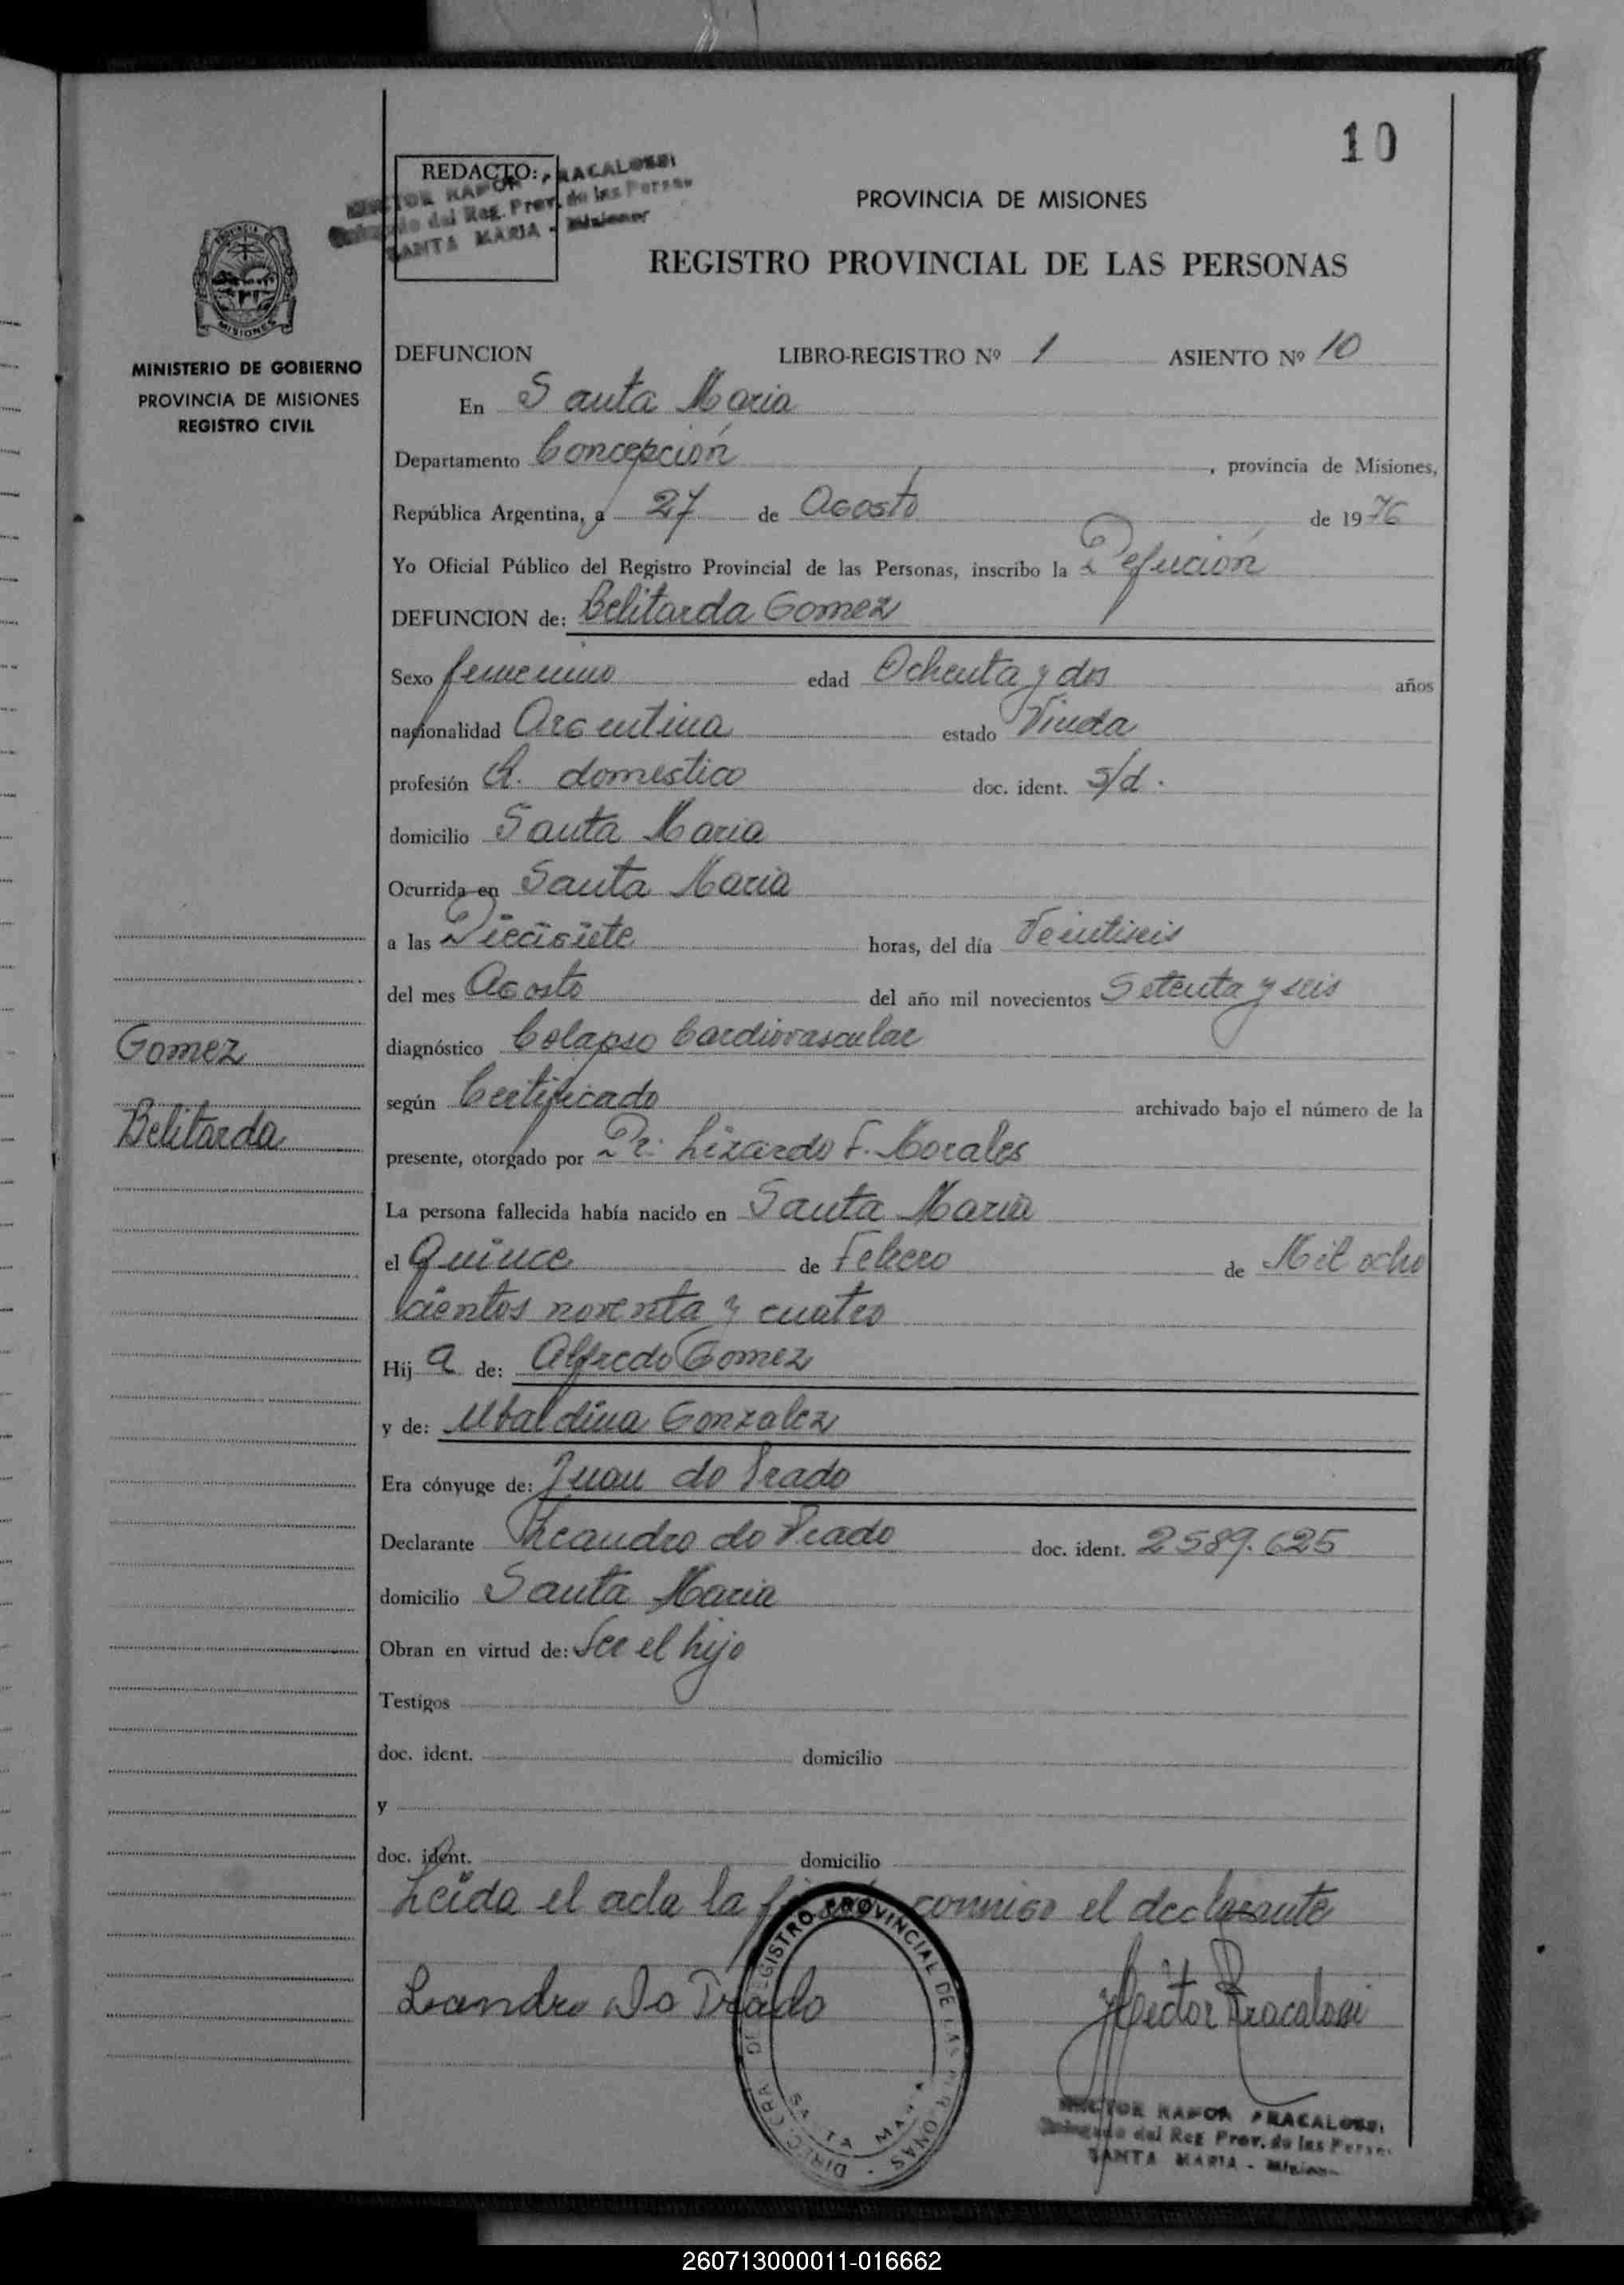 10
REDACTO:
HECTOR RAMON FRACALOSSI
Delegado del Reg. Prov. de las Personas
SANTA MARIA - Misiones
PROVINCIA DE MISIONES
REGISTRO PROVINCIAL DE LAS PERSONAS
PROVINCIA DE MISIONES
MINISTERIO DE GOBIERNO
PROVINCIA DE MISIONES
REGISTRO CIVIL
DEFUNCION LIBRO-REGISTRO Nº 1 ASIENTO Nº 10
En Santa Maria
Departamento Concepción, provincia de Misiones,
República Argentina, a 27 de Agosto de 1976
Yo Oficial Público del Registro Provincial de las Personas, inscribo la Defución
DEFUNCION de: Belitarda Gomez
Sexo femenino edad Ochenta y dos años
nacionalidad Argentina estado Viuda
profesión Q. domestico doc. ident. s/d.
domicilio Santa Maria
Ocurrida en Santa Maria
a las Diecisiete horas, del día Veintiseis
del mes Agosto del año mil novecientos Setenta y seis
diagnóstico Colapso Cardiovascular
según Certificado archivado bajo el número de la
presente, otorgado por Dr. Lizardo F. Morales
La persona fallecida había nacido en Santa Maria
el Quince de Febrero de Mil ocho
cientos noventa y cuatro
Hij a de: Alfredo Gomez
y de: Ubaldina Gonzalez
Era cónyuge de: Juan do Prado
Declarante Leandro do Prado doc. ident. 2589.625
domicilio Santa Maria
Obran en virtud de: Ser el hijo
Testigos
doc. ident. domicilio
y
doc. ident. domicilio
Leida el acta la firma conmigo el declarante
Leandro Do Prado
Hector Fracalossi
Gomez
Belitarda
REGISTRO PROVINCIAL DE LAS PERSONAS
HECTOR RAMON FRACALOSSI
Delegado del Reg. Prov. de las Persn.
SANTA MARIA - Misiones
260713000011-016662